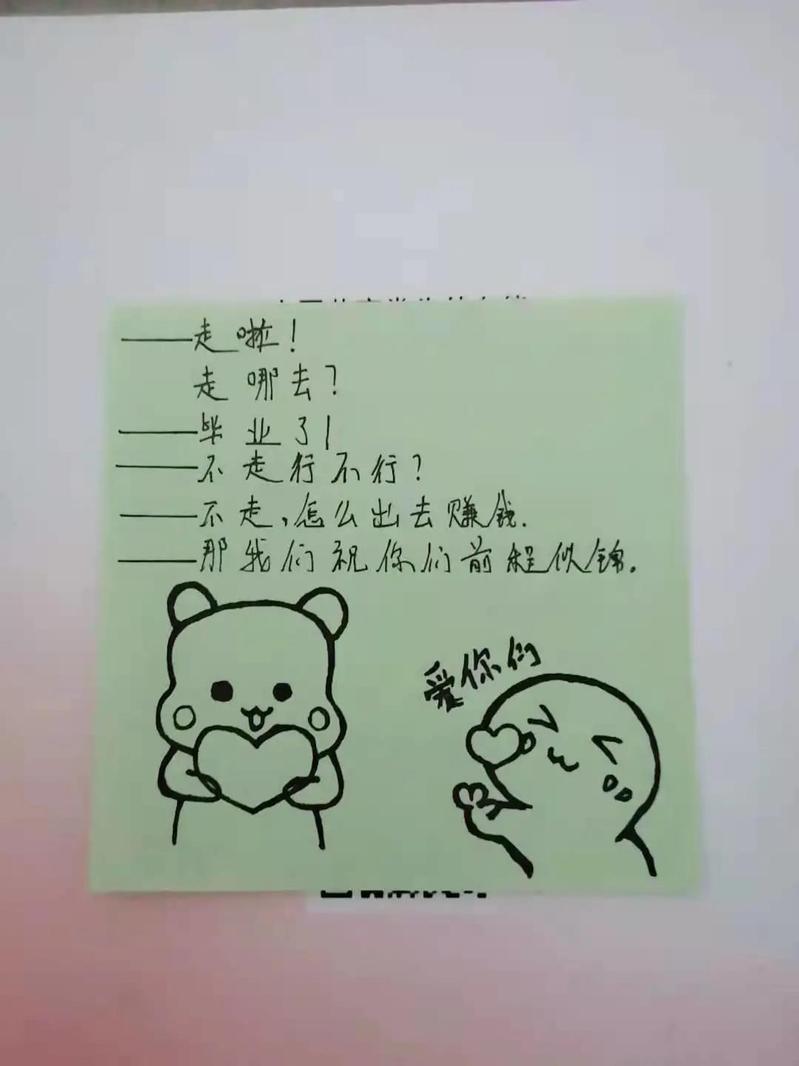 ——走啦！
走哪去？
——毕业了！
——不走行不行？
——不走，怎么出去赚钱.
——那我们祝你们前程似锦.
爱你们